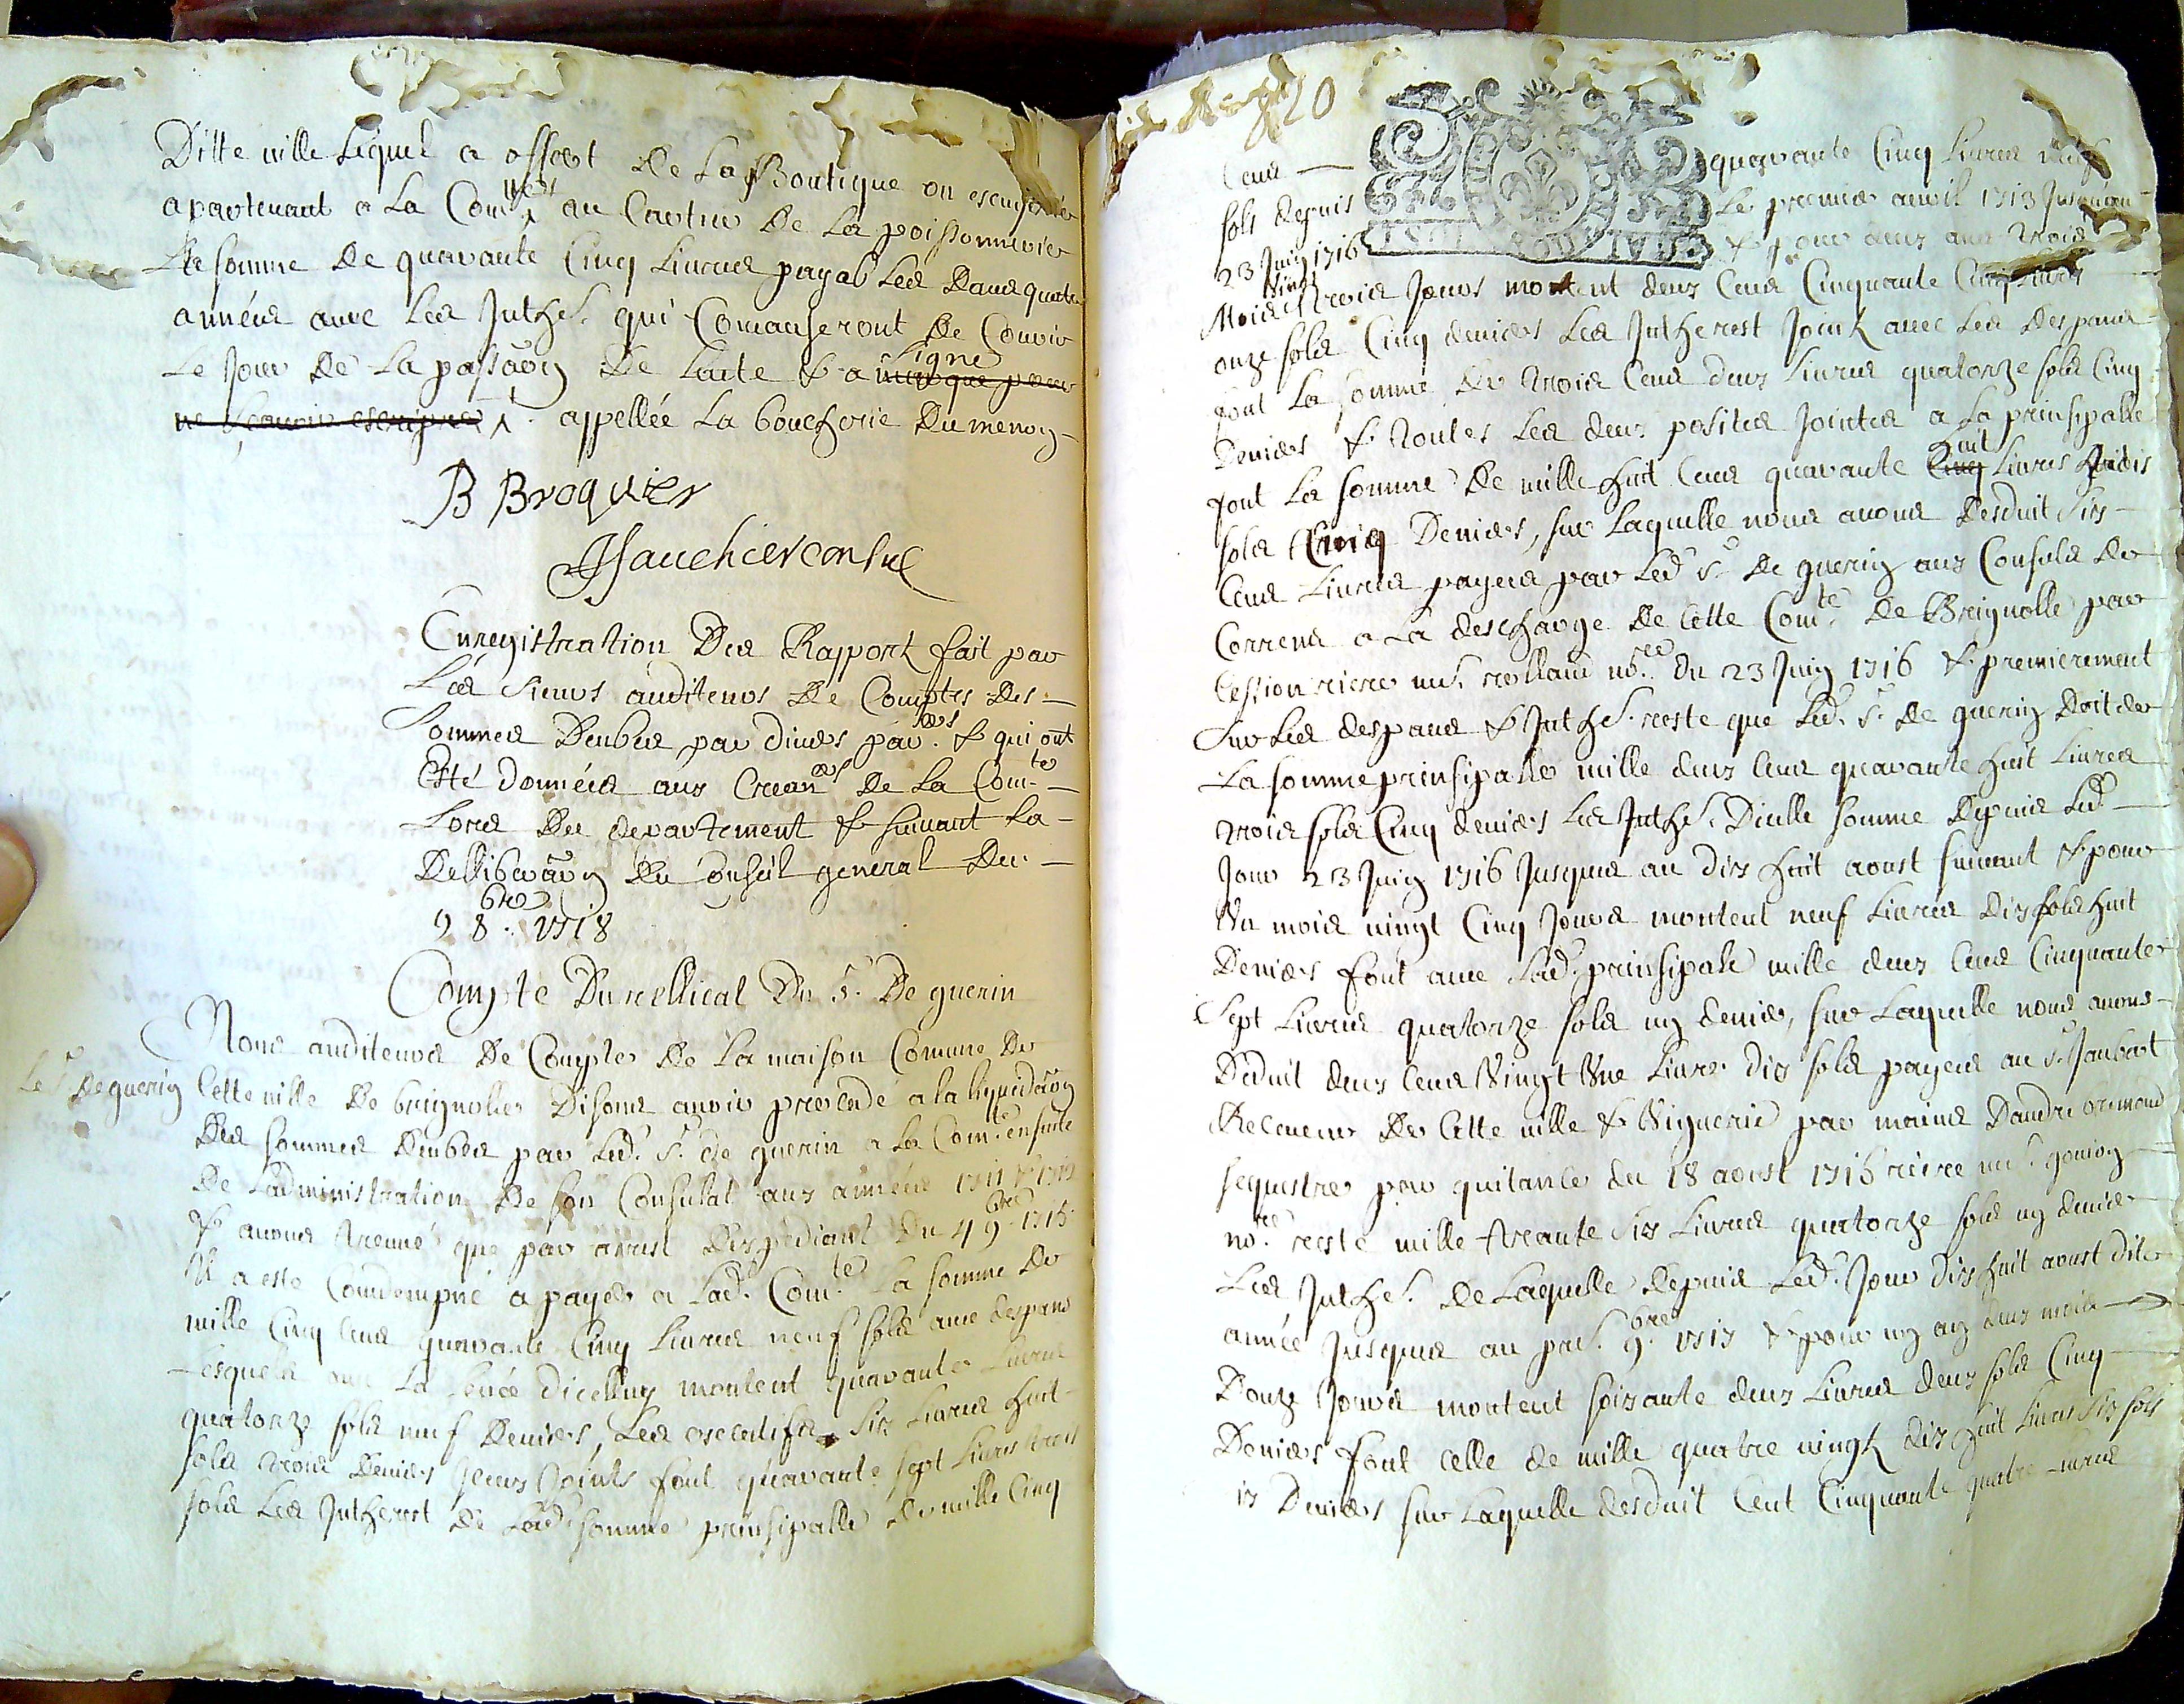 Ditte ville Lequel a offert De La Boutique ou escuyerie
apartenant a La Com.té au Cartier De La poissonnerie
La somme De quarante Cinq Livres payables Dans quatre
années avec Les Inthe.s qui Comanseront De Courir
Le Jour De La passãon De Lacte & a signé marque pour
ne sçavoir escripre appellée La boucherie Du menon
B Broquier
Jfauchier consul
Enregistration Des Rapport fait par
Les Sieurs auditeurs De Comptes Des
Sommes Deubes par divers par.ers & qui ont
Esté données aux Crean.ers De La Com.té
Lors Du departement & suivant La
Delliberãon Du Conseil general Du
9 8.bre 1718
Compte Du rellicat Du S.r De guerin
Le S.r De guerin
Nous auditeurs De Comptes De La maison Comune De
Cette ville De brignolles Disons avoir procedé a la liquidãon
Des sommes Deubes par Led. S.r de guerin a La Com.té ensuite
De Ladministration De son Consulat aux années 1711 & 1712
& avons treuvé que par arrest Dexpediant Du 4 9.bre 1715
Il a esté Condempné a payer a Lad. Com.té La somme De
mille Cinq Cens quarante Cinq Livres neuf sols avec despans
Lesquels avec La Levée Dicelluy montent quarante Livres
quatorze sols neuf Deniers, Les executifs Six Livres huit
sols trois Deniers Iceux Joints font quarante sept Livres trois
sols Les Intherest De Lad. somme prinsipalle De mille Cinq
820
Cens quarante Cinq Livres neuf
sols depuis Le premier avril 1713 Jusquau
23 Juin 1716 & pour deux ans trois
Mois vingt trois Jours montent deux Cens Cinquante Cinq Livres
onze sols Cinq deniers Les Intherest Joint avec Les despans
font La somme De trois Cens deux Livres quatorze sols Cinq
Deniers & toutes Les deux posites Jointes a La prinsipalle
font La somme De mille huit Cens quarante Cinq huit Livres trois
sols Cinq Deniers, sur Laquelle nous avons Desduit Six
Cens Livres payées par Led. S.r De guerin aux Consuls De
Correns a La descharge De Cette Com.té De Brignolle par
Cession riere m.e rollaud no.re du 23 Juin 1716 & premierement
Sur Les despans & Inthe.s reste que Led. S.r De guerin Doit de
La somme prinsipalle mille deux Cens quarante huit Livres
trois sols Cinq deniers Les Inthe.s Dicelle somme Depuis Led.
Jour 23 Juin 1716 Jusques au dix huit aoust suivant & pour
Un mois vingt Cinq Jours montent neuf Livres Dix sols huit
Deniers font avec Lad. prinsipale mille deux Cens Cinquante
Sept Livres quatorze sols un denier, sur Laquelle nous avons
Déduit deux Cens Vingt Une Livres dix sols payées au S.r Jaubert
Receveur De Cette ville & Viguerie par mains Dandre
sequestre par quitance du 18 aoust 1716 riere m.e goujon
no.re reste mille trante Six Livres quatorze sols un denier
Les Inthe.s De Laquelle depuis Led. Jour dix huit aoust dite
année Jusques au p.er 9.bre 1717 & pour un an deux mois
Douze Jours montent soixante deux Livres deux sols Cinq
Deniers font Celle de mille quatre vingt dix huit Livres Six sols
ix Deniers sur Laquelle desduit Cent Cinquante quatre Livres